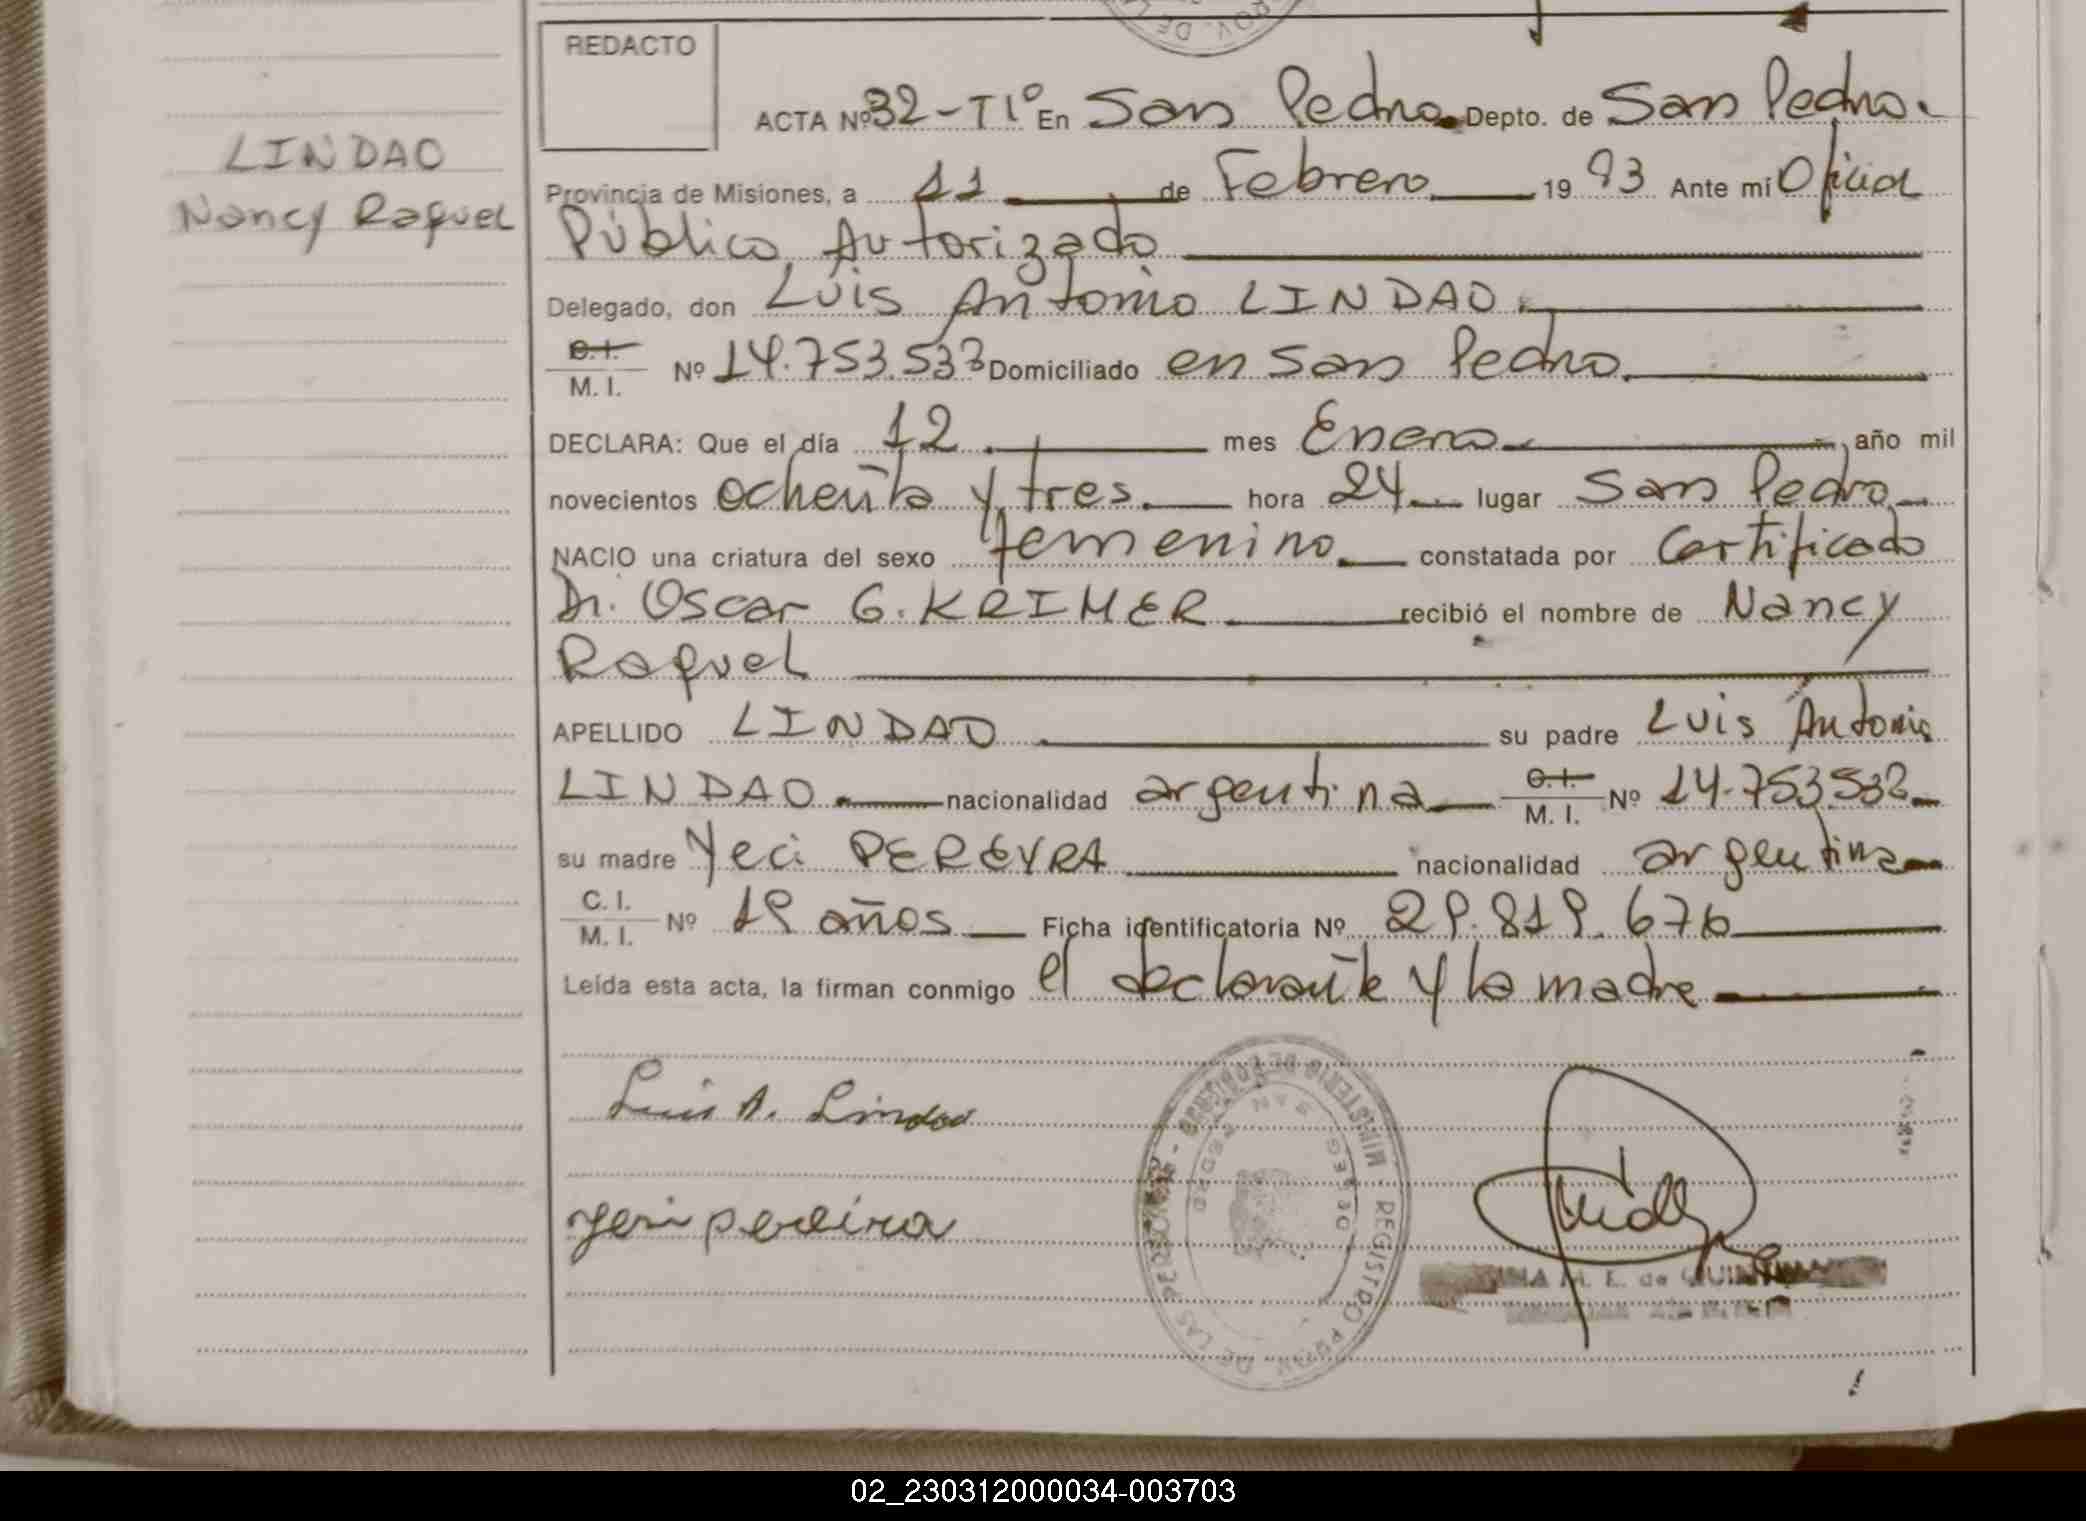 PROV. DE
REDACTO
ACTA Nº 32-T1º En San Pedro Depto. de San Pedro.
LINDAO
Nancy Raquel
Provincia de Misiones, a 11 de Febrero 1993 Ante mí Oficial
Público Autorizado
Delegado, don Luis Antonio LINDAO
C.I.
M. I. Nº 14.753.532 Domiciliado en San Pedro.
DECLARA: Que el día 12 mes Enero año mil
novecientos ochenta y tres. hora 24 lugar San Pedro
NACIO una criatura del sexo femenino. constatada por Certificado
Dr. Oscar G. KRIMER recibió el nombre de Nancy
Raquel
APELLIDO LINDAO su padre Luis Antonio
LINDAO nacionalidad argentina C.I. M. I. Nº 14.753.532
su madre Yeci PEREYRA nacionalidad argentina
C. I.
M. I. Nº 19 años Ficha identificatoria Nº 29.819.676
Leída esta acta, la firman conmigo el declarante y la madre
Luis A. Lindao
yeri pereira
MINISTERIO DE GOBIERNO - REGISTRO PROV. DE LAS PERSONAS
SAN PEDRO
M. E. de QUIN
02_230312000034-003703